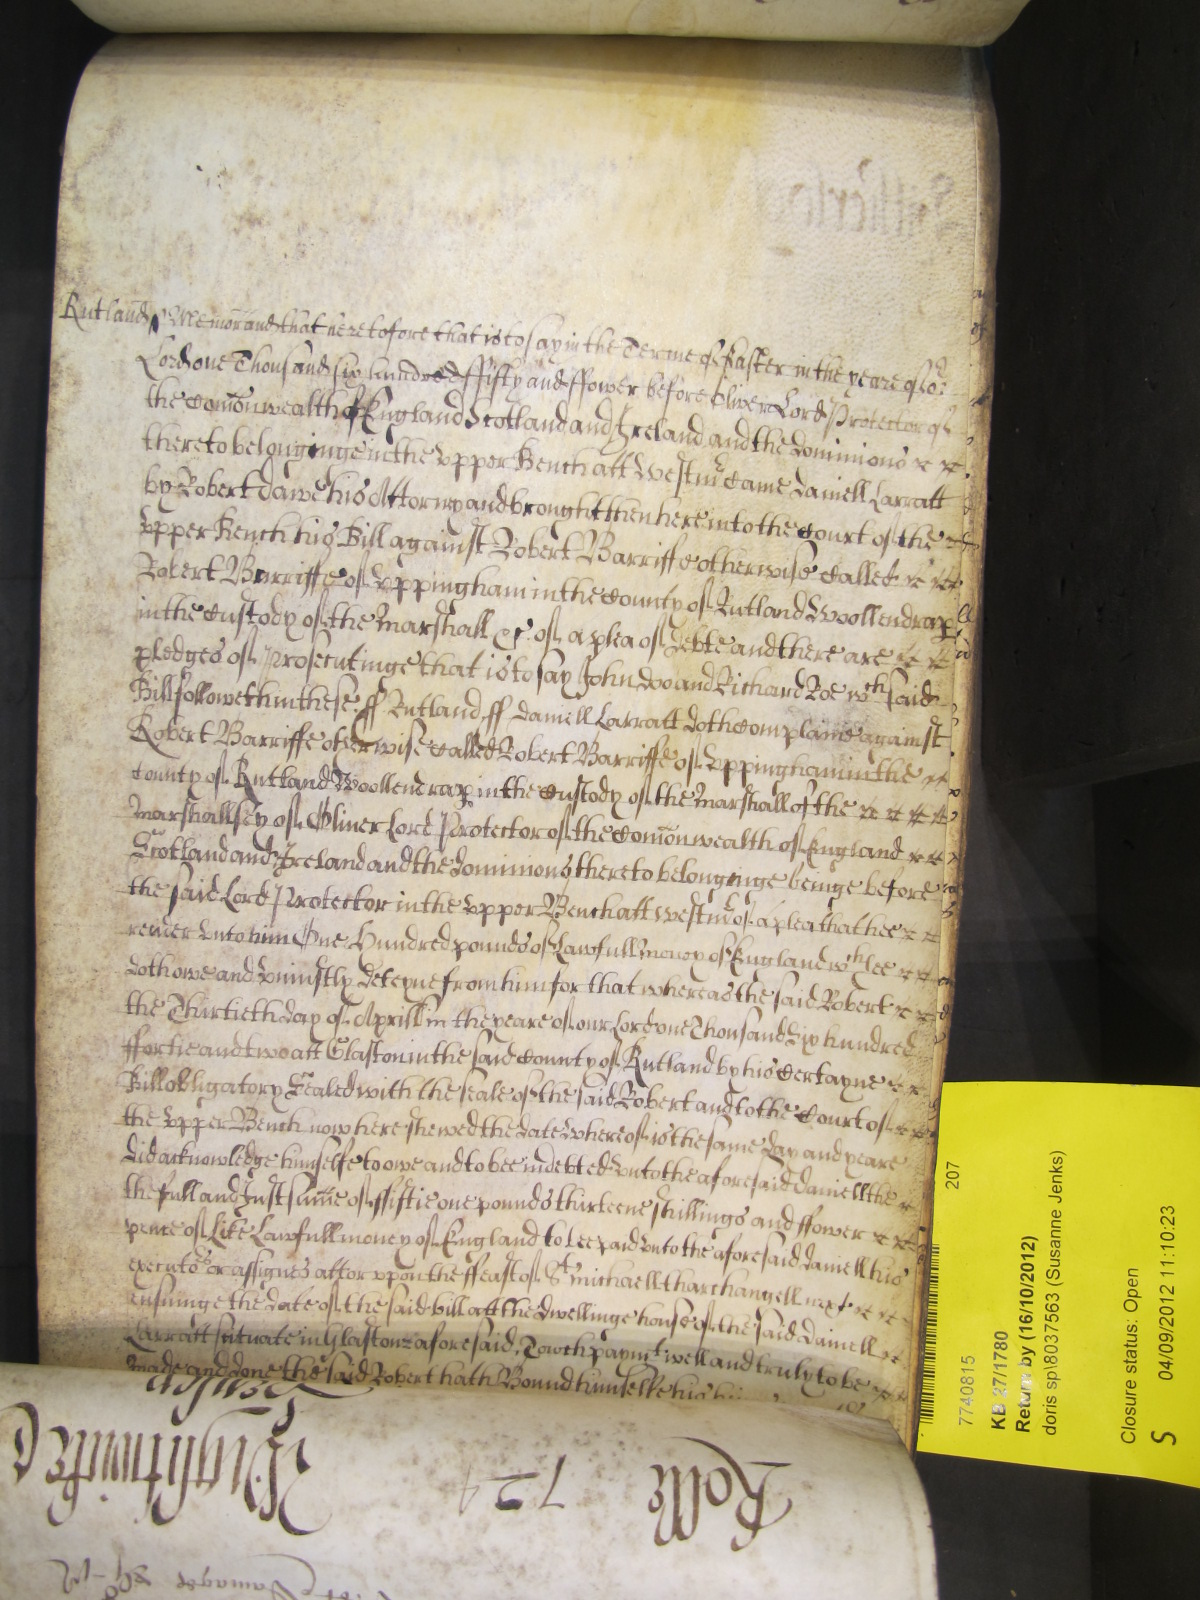 Rutland Memorand that heretofore that is to say in the Terme of Easter in the yeare of or
Lord one Thousand six hundred Fifty and ffower before Oliver Lord Protector of
the Comonwealth of England Scotland and Ireland and the Dominions
thereto belonginge in the Upper Bench att Westmr Came Daniell Larratt
by Robert Dawe his Attorny and brought then here into the Court of the
Upper Bench his Bill against Robert Barriffe otherwise Called
Robert Barriffe of Uppingham in the County of Rutland Woollendrap
in the Custody of the Marshall &c of a plea of Debte and there are
pledges of Prosecutinge that is to say John Doo and Richard Roe wch said
Bill followeth in these ff Rutland ff Daniell Larratt doth Complaine against
Robert Barriffe otherwise Called Robert Barriffe of Uppingham in the
County of Rutland Woollendrap in the Custody of the Marshall of the
Marshallsey of Oliver Lord Protector of the Comonwealth of England
Scotland and Ireland and the Dominions thereto belonginge beinge before
the said Lord Protector in the Upper Bench att Westmr of a plea that hee
render unto him One Hundred pounds of Lawfull money of England wch hee
doth owe and uniustly deteyne from him for that whereas the said Robert
the Thirtieth day of Aprill in the yeare of our Lord one Thousand Six hundred
ffortie and two att Glaston in the said County of Rutland by his Certayne
Bill Obligatory Sealed with the seale of the said Robert and to the Court of
the Upper Bench now here shewed the date whereof is the same day and yeare
did acknowledge himselfe to owe and to bee indebted unto the aforesaid Daniell the
the full and Just sume of ffiftie one pounds thirteene shillings and ffower
pence of Like Lawfull money of England to bee paid unto the aforesaid Daniell his
executors or assignes att or upon the ffeast of St Michaell tharchangell next
ensuinge the date of the said bill att the dwellinge house of the said Daniell
Larratt scituate in Glaston aforesaid, To wch paymt well and truly to be
made and done the said Robert hath Bound himselfe his
Rolls 724
207
7740815
KB 27/1780
Return by (16/10/2012)
doris sp\8037563 (Susanne Jenks)
Closure status: Open
S 04/09/2012 11:10:23